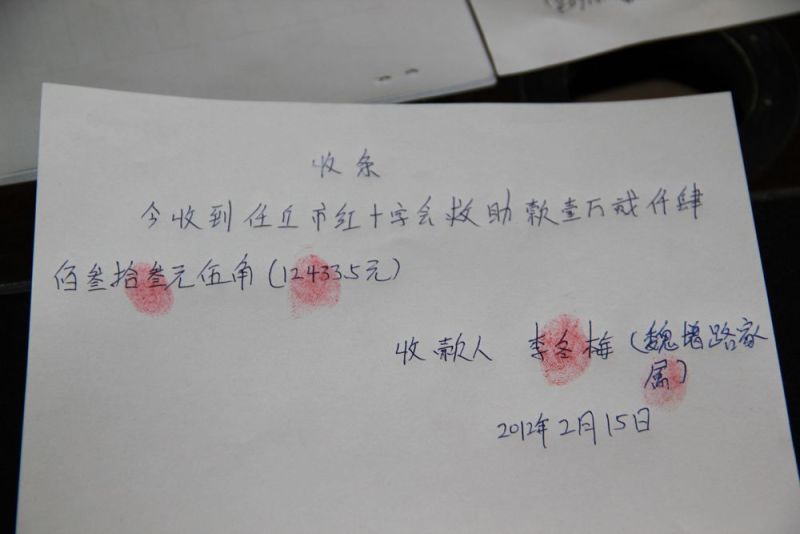 收条
今收到任丘市红十字会救助款壹万贰仟肆
佰叁拾叁元伍角(12433.5元)
收款人 李冬梅(魏增路家
属)
2012年2月15日